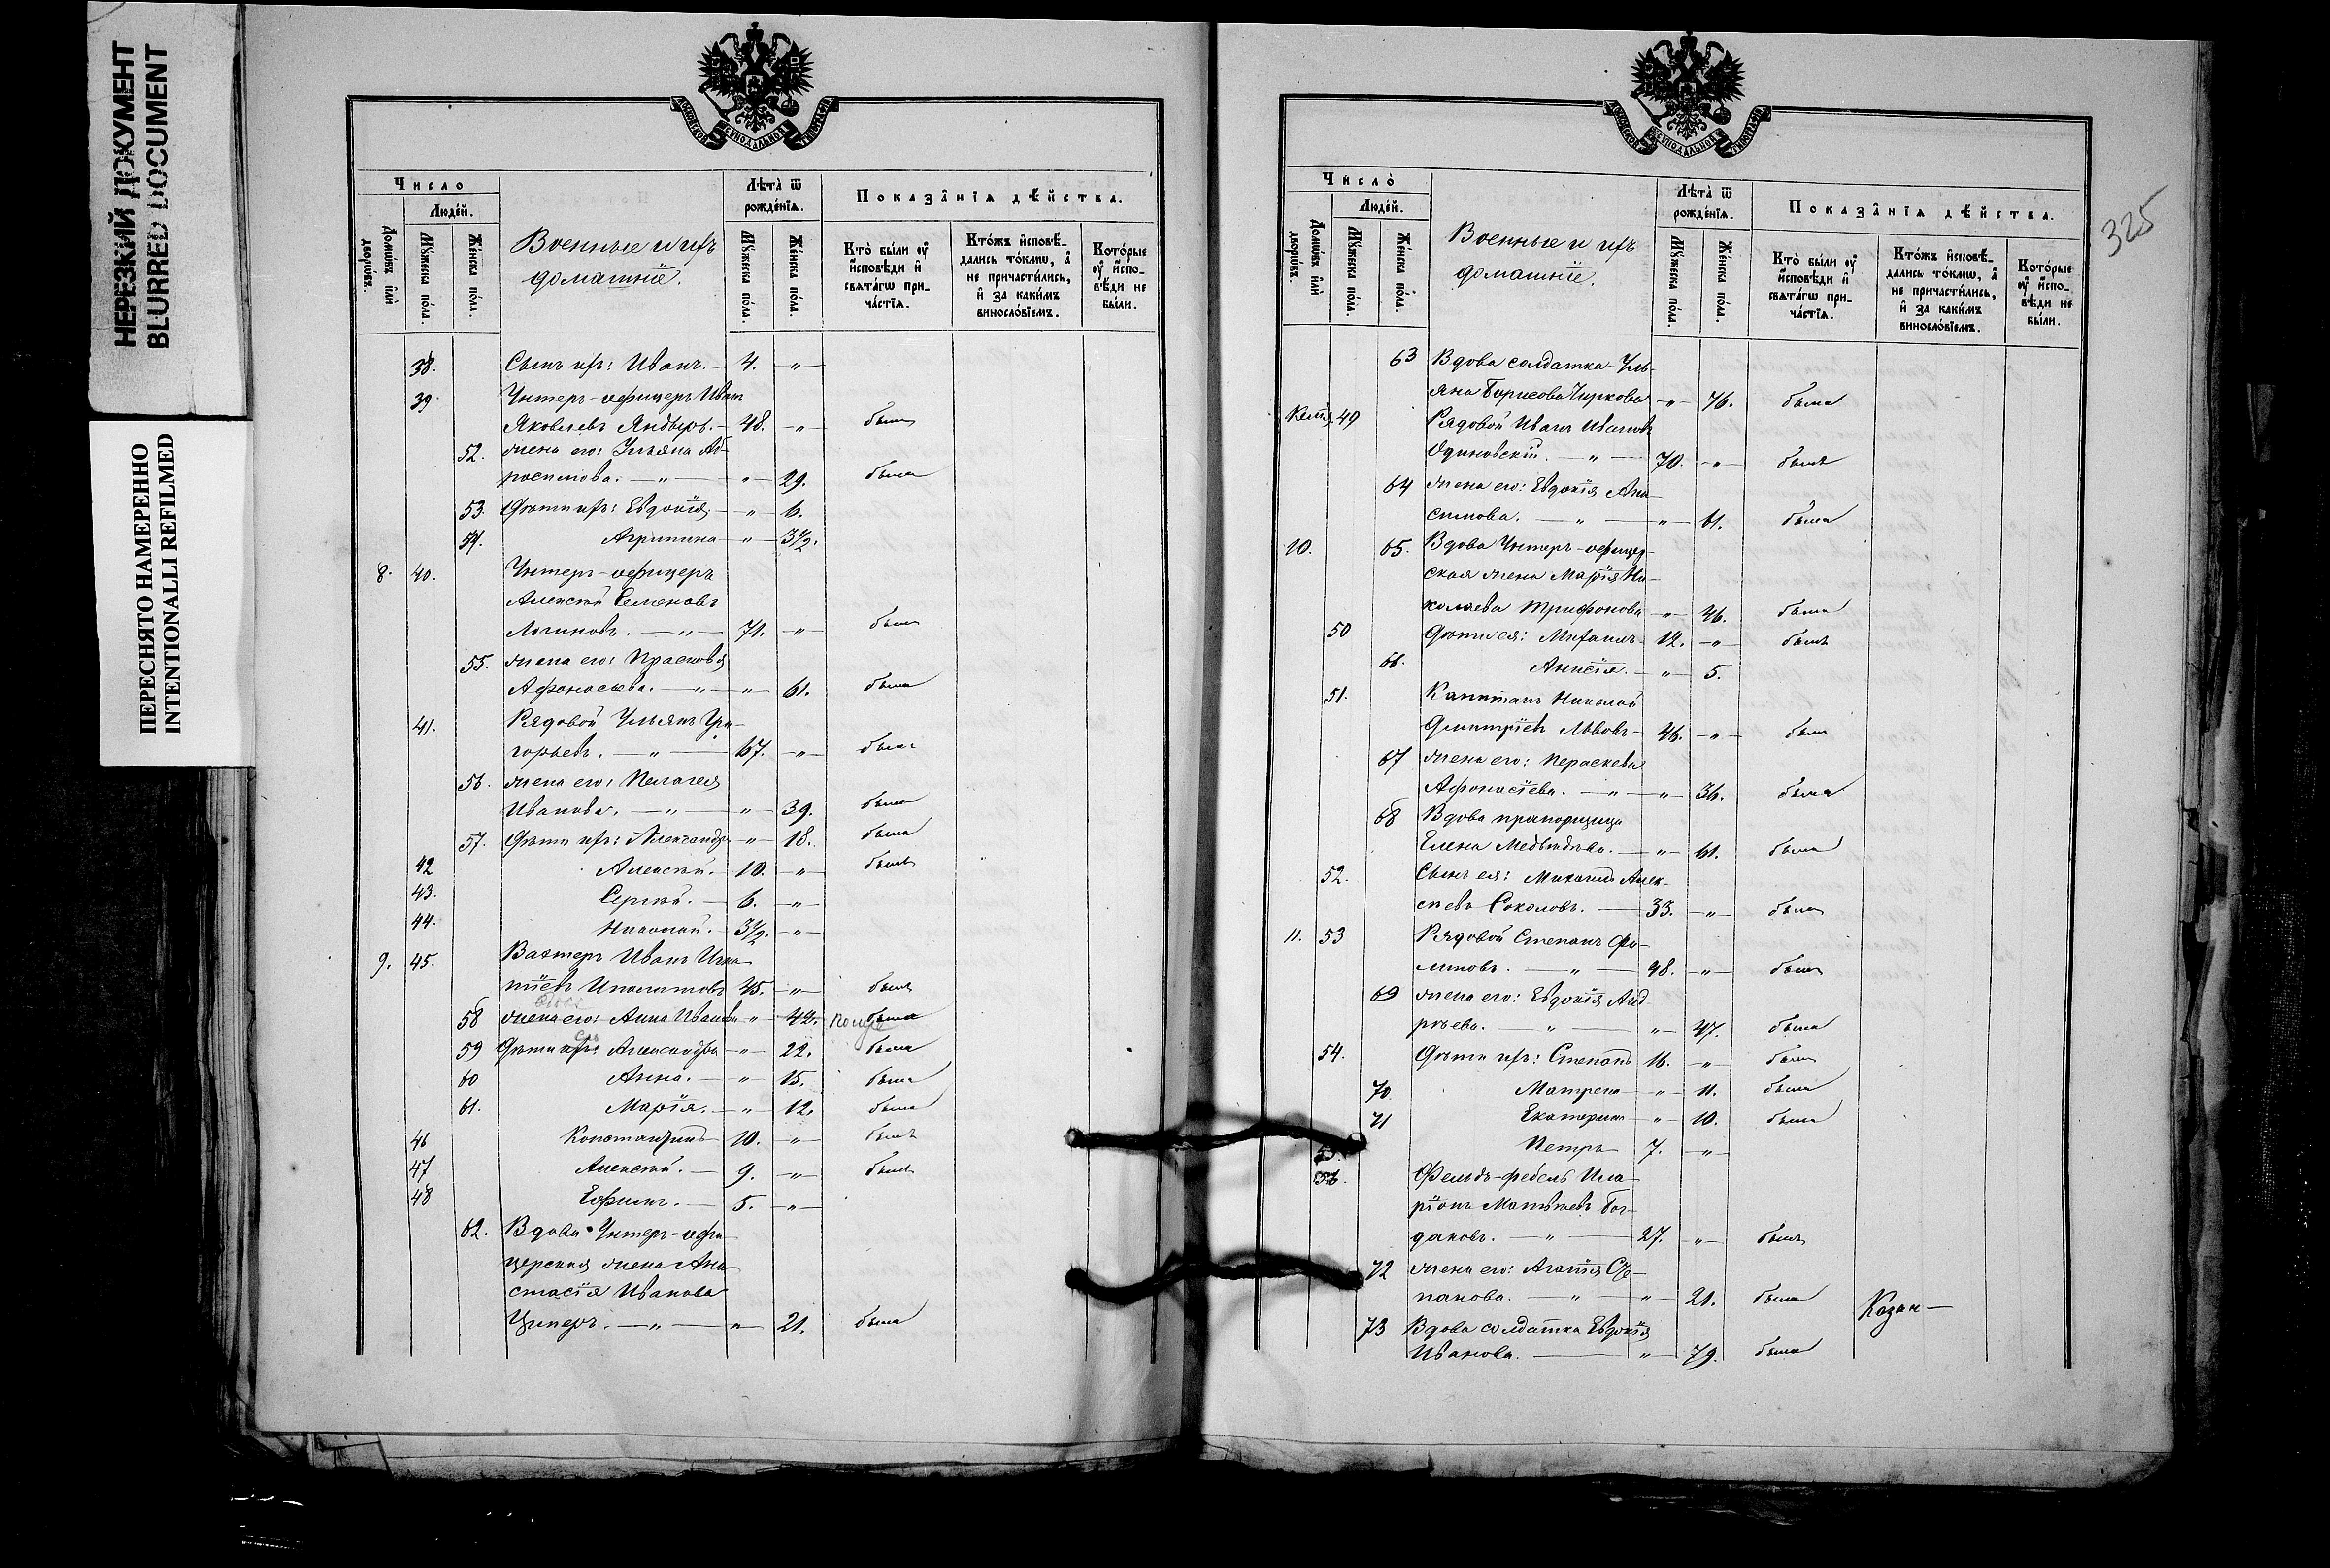 НЕРЕЗКИЙ ДОКУМЕНТ
BLURRED DOCUMENT
ПЕРЕСНЯТО НАМЕРЕННО
INTENTIONALLI REFILMED
МОСКОВСКОЙ СѴНОДАЛЬНОЙ ТИПОГРАФІИ
Число
Людей.
Лѣта ѿ рожденїѧ.
Показанїѧ дѣйства.
Домовъ или дворовъ.
Мужеска пола.
Женска пола.
Военные и ихъ
домашнїе.
Мужеска пола.
Женска пола.
Кто были ѹ исповѣди и свѧтагѡ причастїѧ.
Ктожъ исповѣдались токмѡ, а не причастились, и за какимъ винословїемъ.
Которые ѹ исповѣди не были.
38. Сынъ ихъ: Иванъ. — 4. — „ —
39. Унтеръ-офицеръ Иванъ
Яковлевъ — 48. — „ — былъ
52. жена его: Ульяна Аб-
росимова. — „ — „ — 29. была
53. Дѣти ихъ: Евдокїя — „ — 6.
54. Агрипина — „ — 3½.
8. 40. Унтеръ-офицеръ
Алексѣй Семеновъ
Логиновъ. — „ — 71. — „ — былъ
55. жена его: Прасковья
Афонасьева. — „ — „ — 61. была
41. Рядовой Ульянъ Гри-
горьевъ. — „ — 67. — „ — былъ
56. жена его: Пелагея
Иванова. — „ — „ — 39. была
57. Дѣти ихъ: Александра — „ — 18. была
42 Алексѣй. — 10. — „ — былъ
43. Сергѣй. — 6. — „ —
44. Николай. — 3½. — „ —
9. 45. Вахтеръ Иванъ Игна-
тїевъ Ипполитовъ 45. — „ — былъ
58 жена его: Анна Иванова — „ — 42. была
59 Дѣти ихъ: Александра — „ — 22. была
60 Анна. — „ — 15. была
61. Марїя. — „ — 12. была
46 Константинъ — 10. — „ — былъ
47 Алексѣй. — 9. — „ — былъ
48 Ефимъ. — 5. — „ —
62. Вдова Унтеръ-офи-
церская жена Ана-
стасїя Иванова
Циперъ. — „ — „ — 21. была
325
МОСКОВСКОЙ СѴНОДАЛЬНОЙ ТИПОГРАФІИ
Число
Людей.
Лѣта ѿ рожденїѧ.
Показанїѧ дѣйства.
Домовъ или дворовъ.
Мужеска пола.
Женска пола.
Военные и ихъ
домашнїе.
Мужеска пола.
Женска пола.
Кто были ѹ исповѣди и свѧтагѡ причастїѧ.
Ктожъ исповѣдались токмѡ, а не причастились, и за какимъ винословїемъ.
Которые ѹ исповѣди не были.
63 Вдова солдатка Уль-
яна Борисова Чиркова — „ — 76. была
49 Рядовой Иванъ Ивановъ
Одиновскїй. — „ — 70. — „ — былъ
64 жена его: Евдокїя Ани-
симова. — „ — „ — 61. была
10. 65. Вдова Унтеръ-офицер-
ская жена Марїя Ни-
колаева Трифонова — „ — 46. была
50 Дѣти ея: Михаилъ — 12. — „ — былъ
66. Анисїя. — „ — 5.
51. Капитанъ Николай
Дмитрїевъ Львовъ — 46. — „ — былъ
67 жена его: Параскева
Афонасїева. — „ — „ — 36. была
68 Вдова прапорщица
Елена Медвѣдева. — „ — 61. была
52. Сынъ ея: Михаилъ Алек-
сѣевъ Соколовъ. — 33. — „ — былъ
11. 53 Рядовой Степанъ Фи-
липовъ. — „ — 48. — „ — былъ
69 жена его: Евдокїя Анд-
рѣева. — „ — „ — 47. была
54. Дѣти ихъ: Степанъ 16. — „ — былъ
70 Матрена — „ — 11. была
71 Екатерина — „ — 10. была
55. Петръ — 7. — „ —
56. Фельдъ-фебель Ила-
рїонъ Матвѣевъ Бог-
дановъ. — „ — 27. — „ — былъ
72 жена его: Агапїя Сте-
панова. — „ — „ — 21. была
Казан —
73 Вдова солдатка Евдокїя
Иванова. — „ — 79. была